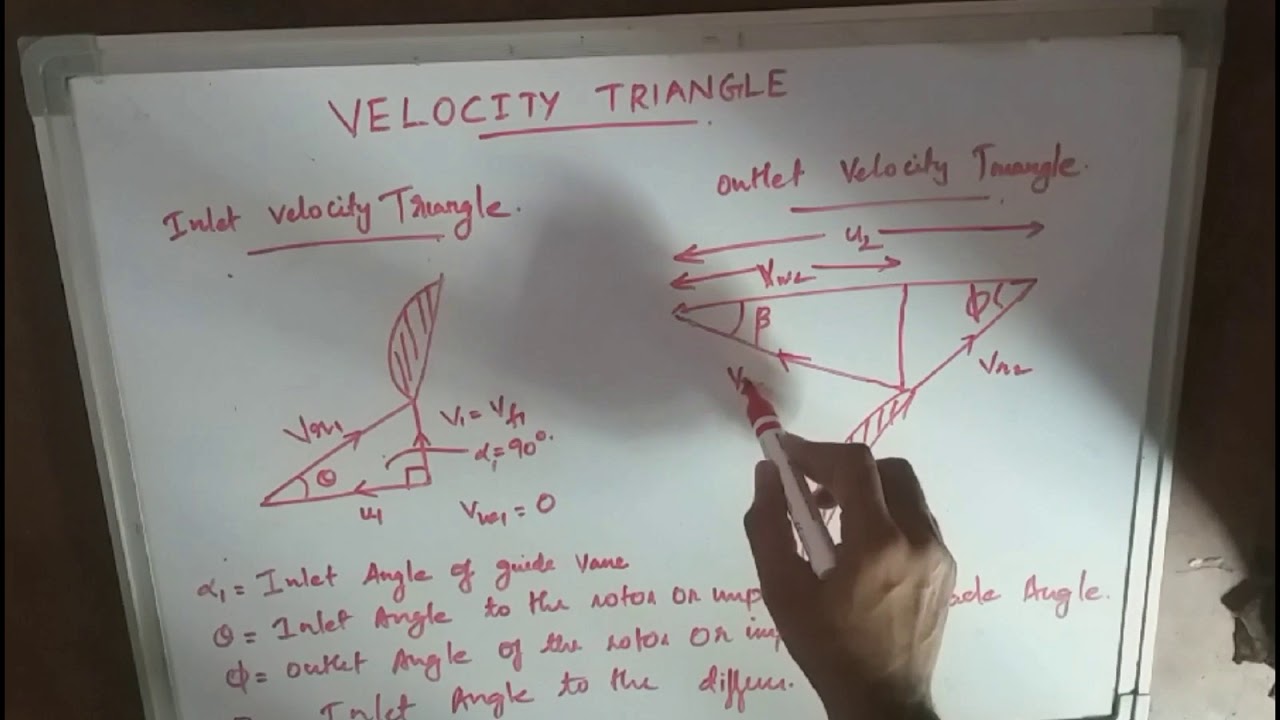 VELOCITY TRIANGLE
Inlet velocity Triangle.
Outlet Velocity Triangle.
u2
Vw2
β
ϕ
Vr2
V2
Vr1
V1 = Vf1
α1 = 90°
θ
u1
Vw1 = 0
α1 = Inlet Angle of guide Vane
θ = Inlet Angle to the rotor or imp ade Angle.
ϕ = outlet Angle of the rotor or imp
Inlet Angle to the diffuser.